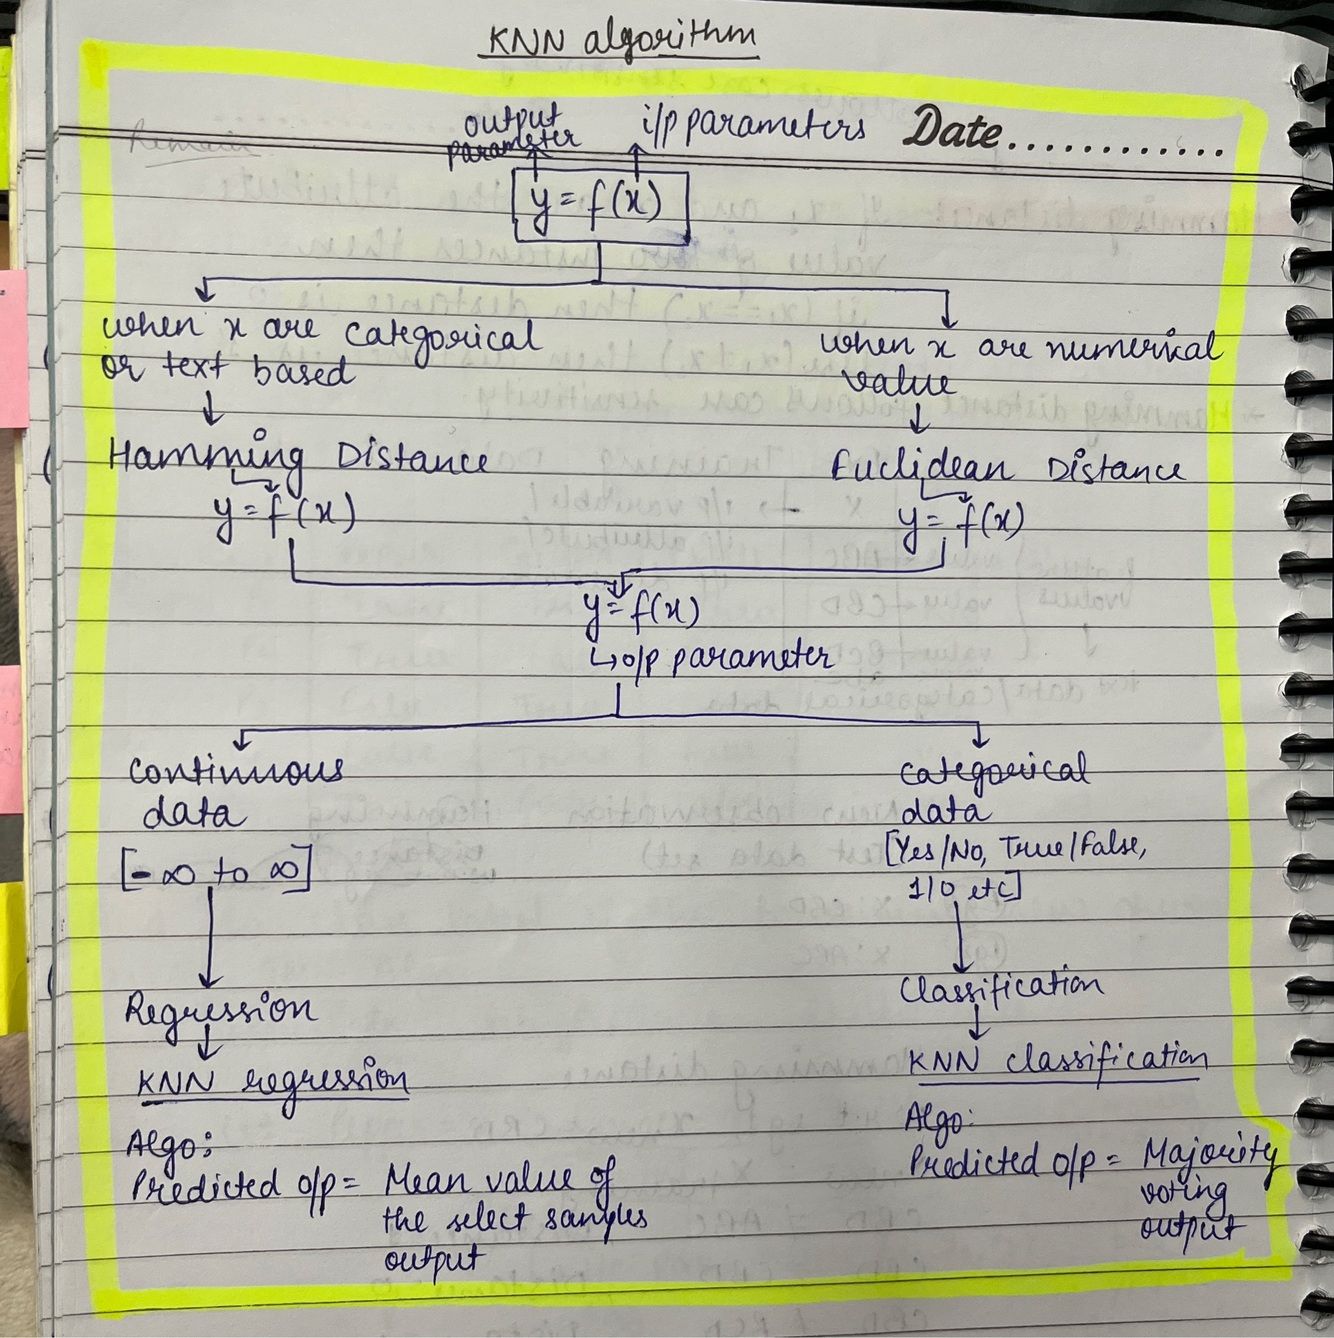 KNN algorithm
output
parameter
i/p parameters
Date............
y = f(x)
when x are categorical
or text based
when x are numerical
value
Hamming Distance
Euclidean Distance
y = f(x)
y = f(x)
y = f(x)
↳ o/p parameter
Continuous
data
[-∞ to ∞]
Categorical
data
[Yes/No, True/False,
1/0 etc]
Regression
Classification
KNN regression
KNN classification
Algo:
Predicted o/p = Mean value of
the select samples
output
Algo:
Predicted o/p = Majority
voting
output